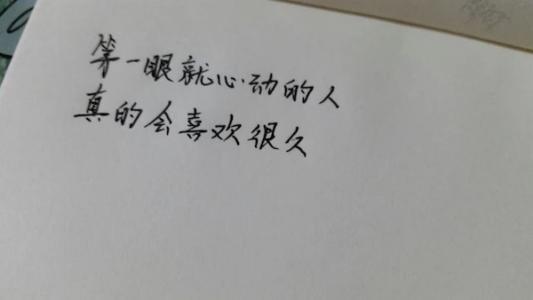 第一眼就心动的人
真的会喜欢很久